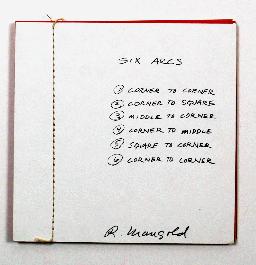 SIX ARCS
① CORNER TO CORNER
② CORNER TO SQUARE
③ MIDDLE TO CORNER
④ CORNER TO MIDDLE
⑤ SQUARE TO CORNER
⑥ CORNER TO CORNER
R. Mangold